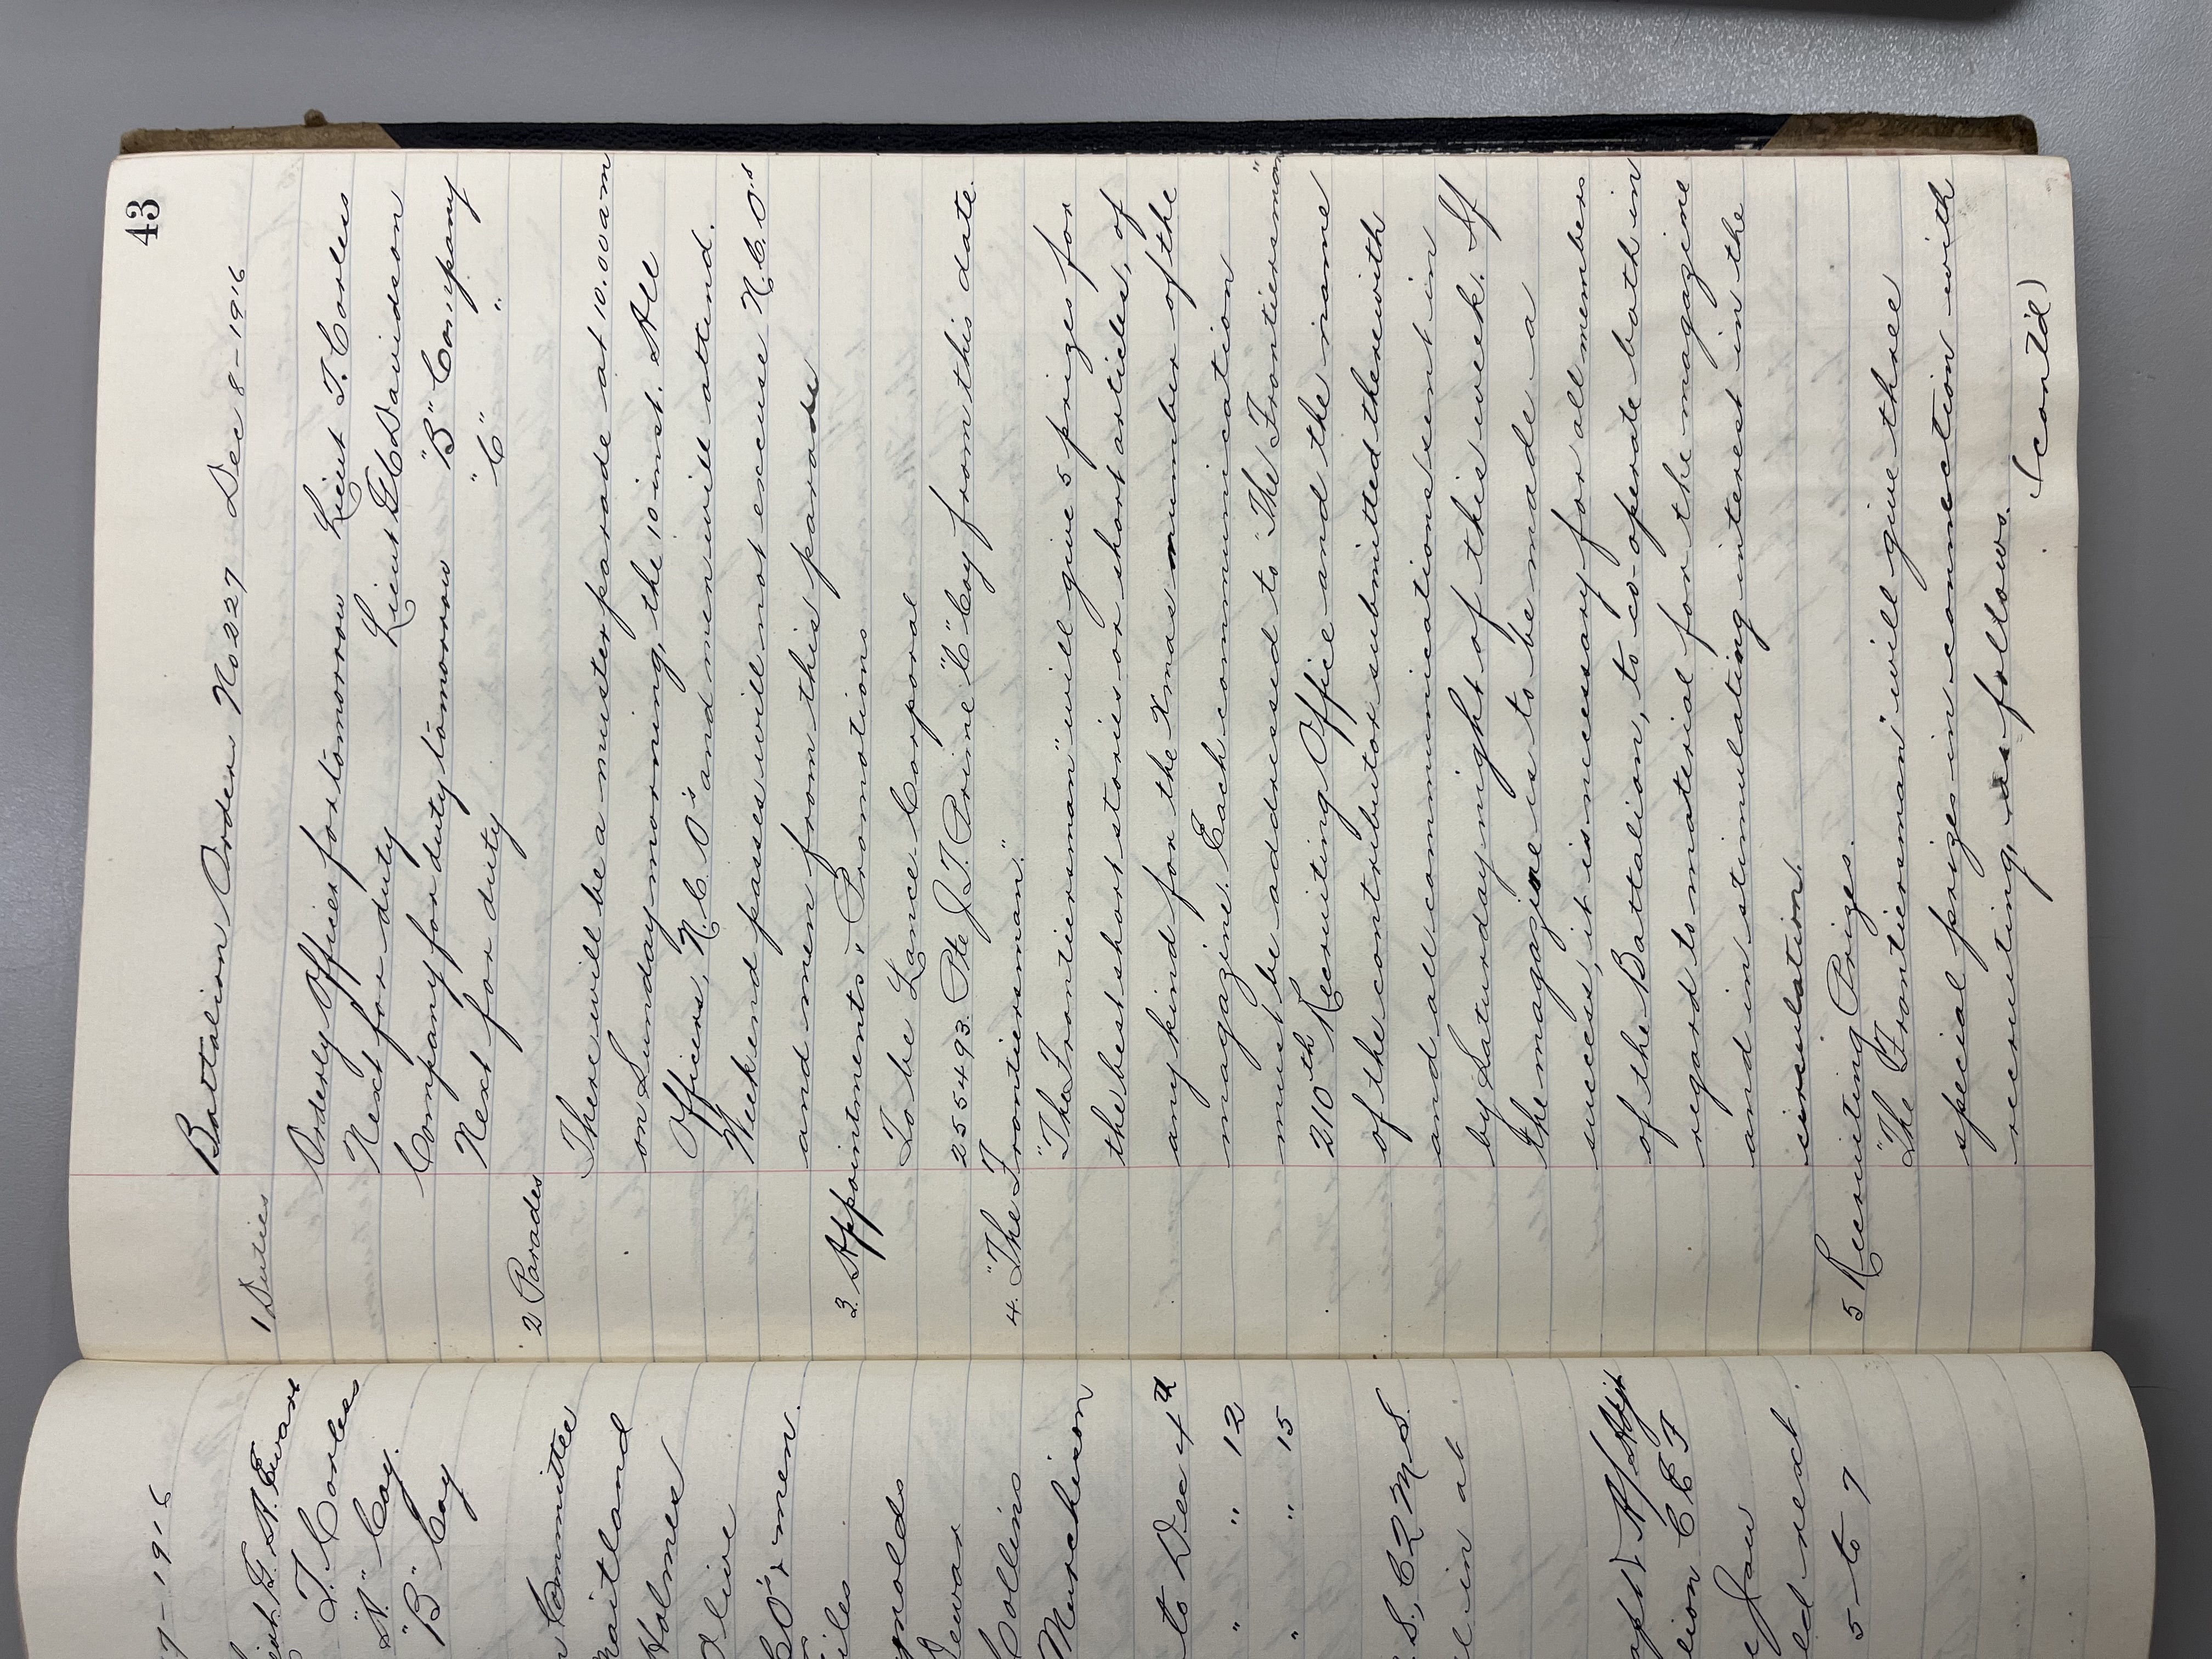 43
Battalion Orders No 227 Dec 8-1916
1 Duties
Orderly Officer for tomorrow Lieut T. Corles
Next for duty Lieut Davidson
Company for duty tomorrow "B" Company
Next for duty "C" "
2 Parades
There will be a muster parade at 10.00 am
on Sunday morning, the 10 inst. All
Officers, N.C.O's and men will attend.
Weekend passes will not excuse N.C.O's
and men from this parade
3. Appointments & Promotions
To be Lance Corporal
255493. Pte J.T. Prime "C" Coy from this date.
4. "The Frontiersman."
"The Frontiersman" will give 5 prizes for
the best short stories or short articles, of
any kind for the Xmas number of the
magazine. Each communication
must be addressed to "The Frontiersman"
210th Recruiting Office and the name
of the contributor submitted therewith
and all communications sent in
by Saturday night of this week. If
the magazine is to be made a
success, it is necessary for all members
of the Battalion, to co-operate both in
regard to material for the magazine
and in stimulating interest in the
circulation.
5 Recruiting Prizes.
"The Frontiersman" will give three
special prizes in connection with
recruiting, as follows.
(cont'd)
7-1916
G. A. Ewart
T. Corles
"A" Coy.
"B" Coy
Committee
Maitland
Holmes
Olive
men.
Collins
Murchison
to Dec 4th
" " 12
" " 15
in at
Adjt
C E F
Jaw
next
5 to 7